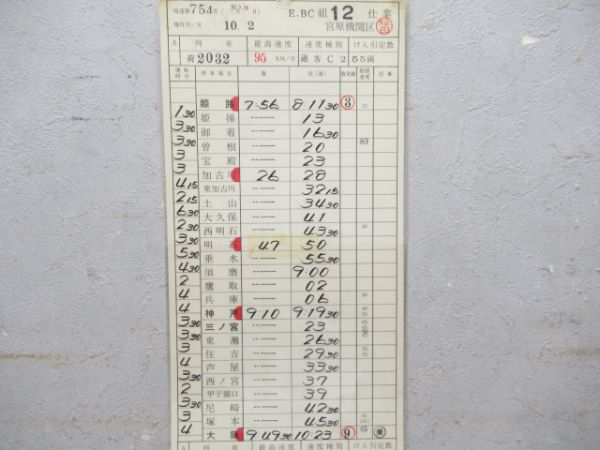 754
E.BC 組 12 仕業
10.2 宮原機関区
A 列車 最高速度 速度種別 けん引定数
荷2032 95 KM/H 通客C2 55両
運転時分 停車場名 着 発(通)
姫路 7:56 8:11 30 ③
1 30 姫操 13
3 30 御着 16 30
3 30 曽根 20
3 宝殿 23
加古川 26 28
4 15 東加古川 32 15
2 15 土山 34 30
6 30 大久保 41
2 30 西明石 43 30
3 30 明石 47 50
5 30 垂水 55 30
4 30 須磨 9:00
2 鷹取 02
4 兵庫 06
4 神戸 9:10 9:19 30
3 30 三ノ宮 23
3 30 東灘 26 30
3 住吉 29 30
4 芦屋 33 30
3 30 西ノ宮 37
2 甲子園口 39
3 30 尼崎 42 30
3 塚本 45 30
4 大阪 9 49 30 10:23 ⑨
A 列車 最高速度 速度種別 けん引定数